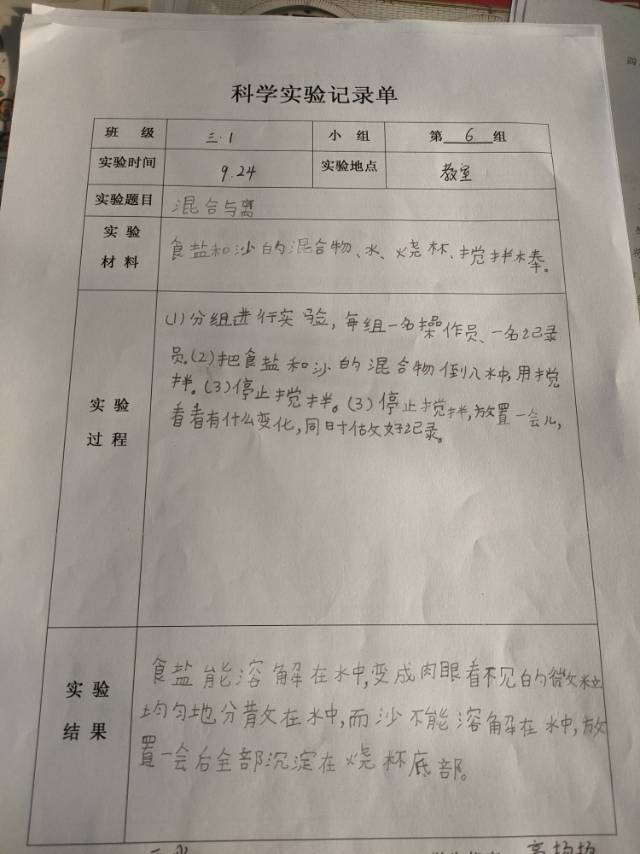 科学实验记录单
班 级 三.1 小 组 第 6 组
实验时间 9.24 实验地点 教室
实验题目 混合与离
实 验 材 料 食盐和沙的混合物、水、烧杯、搅拌棒。
实 验 过 程
(1)分组进行实验,每组一名操作员、一名记录
员。(2)把食盐和沙的混合物倒入水中,用搅
拌。(3)停止搅拌。(3)停止搅拌,放置一会儿,
看看有什么变化,同时做好记录。
实 验 结 果
食盐能溶解在水中,变成肉眼看不见的微粒
均匀地分散在水中,而沙不能溶解在水中,放
置一会后全部沉淀在烧杯底部。